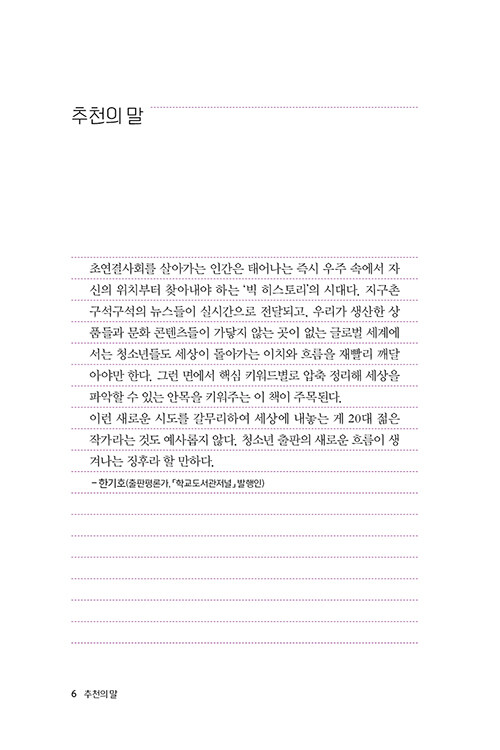 추천의 말
초연결사회를 살아가는 인간은 태어나는 즉시 우주 속에서 자
신의 위치부터 찾아내야 하는 ‘빅 히스토리’의 시대다. 지구촌
구석구석의 뉴스들이 실시간으로 전달되고, 우리가 생산한 상
품들과 문화 콘텐츠들이 가닿지 않는 곳이 없는 글로벌 세계에
서는 청소년들도 세상이 돌아가는 이치와 흐름을 재빨리 깨달
아야만 한다. 그런 면에서 핵심 키워드별로 압축 정리해 세상을
파악할 수 있는 안목을 키워주는 이 책이 주목된다.
이런 새로운 시도를 갈무리하여 세상에 내놓는 게 20대 젊은
작가라는 것도 예사롭지 않다. 청소년 출판의 새로운 흐름이 생
겨나는 징후라 할 만하다.
– 한기호(출판평론가, 「학교도서관저널」 발행인)
6 추천의 말